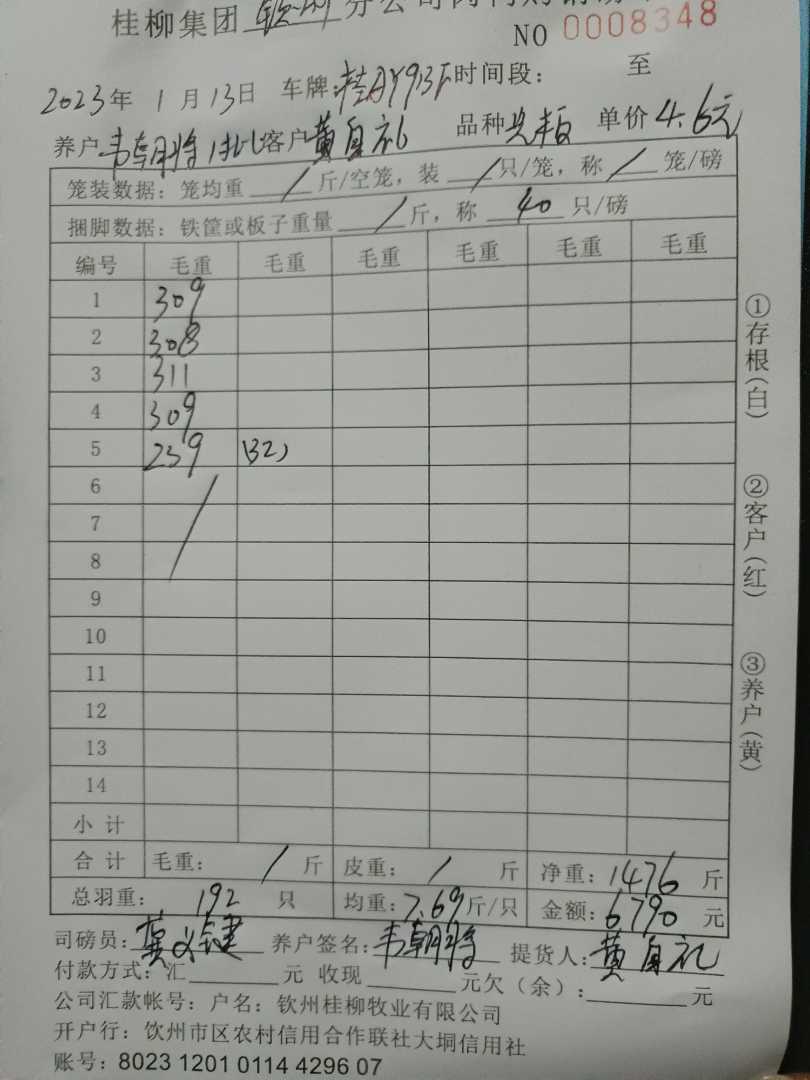 桂柳集团 钦州 分公司
NO 0008348
2023年 1月13日 车牌: 时间段: 至
养户 韦朝将 客户 黄自礼 品种 单价 4.6元
笼装数据: 笼均重 / 斤/空笼, 装 / 只/笼, 称 / 笼/磅
捆脚数据: 铁筐或板子重量 / 斤, 称 40 只/磅
编号 毛重 毛重 毛重 毛重 毛重 毛重
1 309
2 308
3 311
4 309
5 239 (32)
6
7
8
9
10
11
12
13
14
小计
合计 毛重: / 斤 皮重: / 斤 净重: 1476 斤
总羽重: 192 只 均重: 7.69 斤/只 金额: 6790 元
司磅员: 养户签名: 韦朝将 提货人: 黄自礼
付款方式: 汇 元 收现 元欠(余): 元
公司汇款帐号: 户名: 钦州桂柳牧业有限公司
开户行: 饮州市区农村信用合作联社大垌信用社
账号: 8023 1201 0114 4296 07
①存根(白)
②客户(红)
③养户(黄)